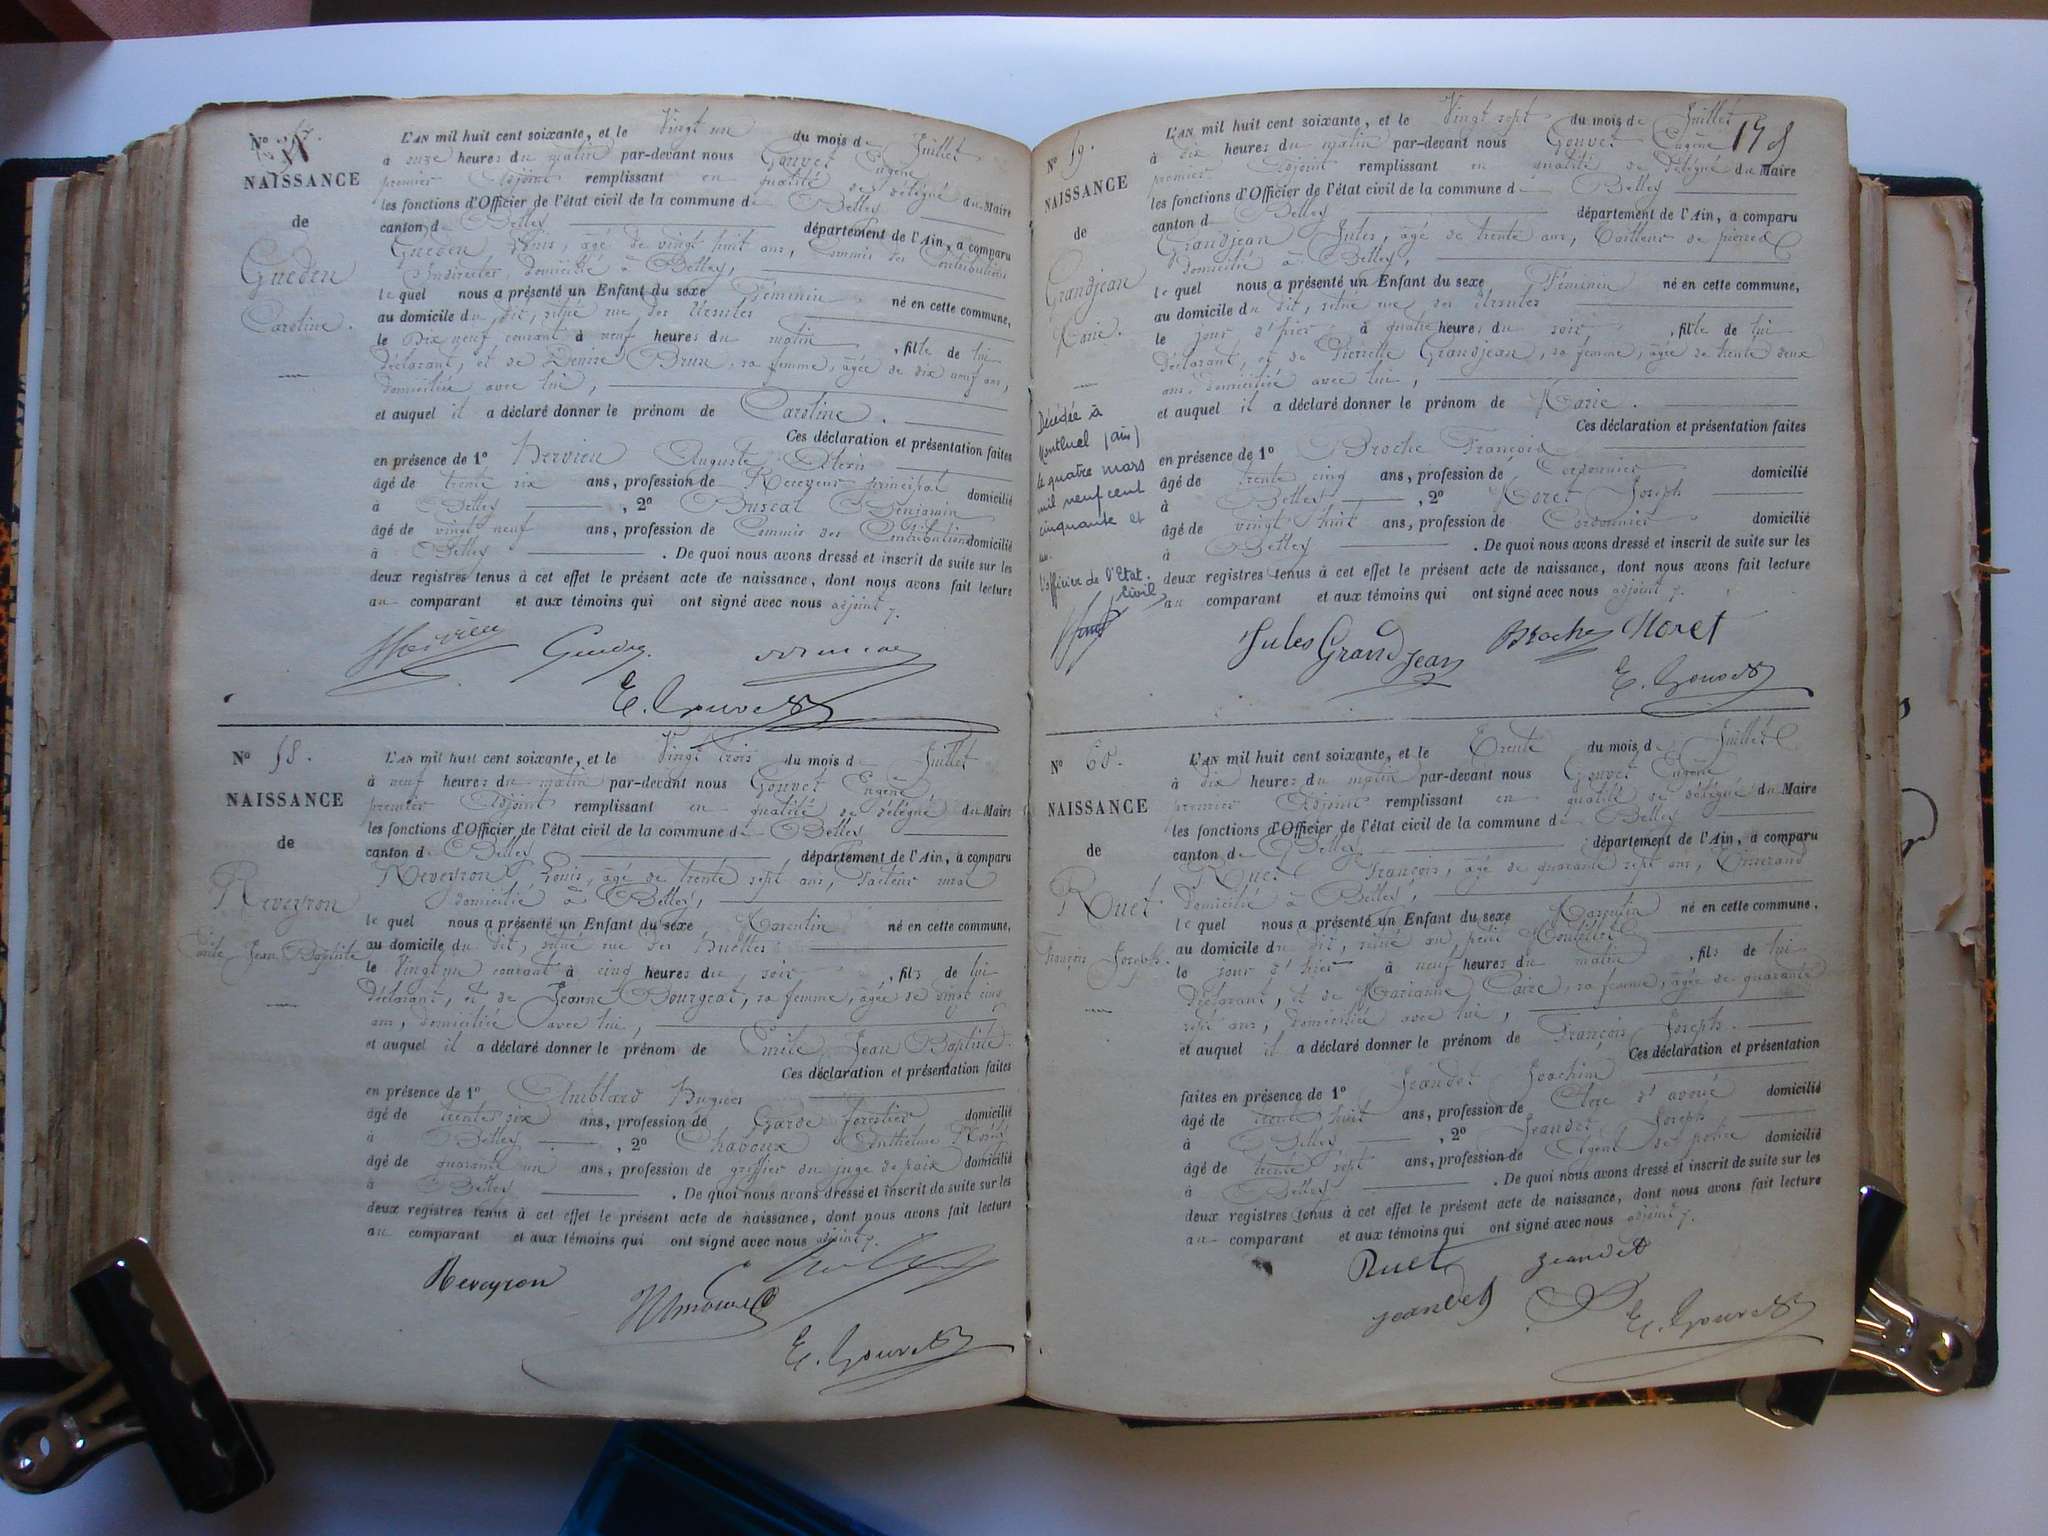 N° 57.
NAISSANCE
de
Gueden
Caroline.
L'AN mil huit cent soixante, et le Vingt un du mois de Juillet
à onze heures du matin par-devant nous Gouvet Eugène
premier Adjoint remplissant en qualité de délégué du Maire
les fonctions d'Officier de l'état civil de la commune de Belley
canton de Belley département de l'Ain, a comparu
Gueden Louis, âgé de vingt huit ans, Commis des Contributions
Indirectes, domicilié à Belley,
lequel nous a présenté un Enfant du sexe Féminin né en cette commune,
au domicile du dit, situé rue des Ursules
le Dix neuf courant à neuf heures du matin, fille de lui
déclarant, et de Denise Brun, sa femme, âgée de dix neuf ans,
domiciliée avec lui,
et auquel il a déclaré donner le prénom de Caroline.
Ces déclaration et présentation faites
en présence de 1° Hervieu Auguste Alexis
âgé de trente six ans, profession de Receveur principal domicilié
à Belley, 2° Buscal Benjamin
âgé de vingt neuf ans, profession de Commis des Contributions domicilié
à Belley. De quoi nous avons dressé et inscrit de suite sur les
deux registres tenus à cet effet le présent acte de naissance, dont nous avons fait lecture
au comparant et aux témoins qui ont signé avec nous adjoint
Hervieu Gueden
E. Gouvet
N° 58.
NAISSANCE
de
Reveyron
Jean Baptiste
L'AN mil huit cent soixante, et le Vingt trois du mois de Juillet
à neuf heures du matin par-devant nous Gouvet Eugène
premier Adjoint remplissant en qualité de délégué du Maire
les fonctions d'Officier de l'état civil de la commune de Belley
canton de Belley département de l'Ain, a comparu
Reveyron Louis, âgé de trente sept ans, Facteur rural
domicilié à Belley,
lequel nous a présenté un Enfant du sexe Masculin né en cette commune,
au domicile du dit, situé rue des
le Vingt un courant à cinq heures du soir, fils de lui
déclarant, et de Jeanne Bourgeat, sa femme, âgée de vingt cinq
ans, domiciliée avec lui,
et auquel il a déclaré donner le prénom de Emile Jean Baptiste.
Ces déclaration et présentation faites
en présence de 1° Amblard Hugues
âgé de trente six ans, profession de Garde forestier domicilié
à Belley, 2° Chavoux Anthelme
âgé de quarante un ans, profession de greffier du juge de paix domicilié
à Belley. De quoi nous avons dressé et inscrit de suite sur les
deux registres tenus à cet effet le présent acte de naissance, dont nous avons fait lecture
au comparant et aux témoins qui ont signé avec nous adjoint
Reveyron
E. Gouvet
178
N° 59.
NAISSANCE
de
Grandjean
Marie.
Décédée à
Montluel (Ain)
le quatre mars
mil neuf cent
cinquante et
un.
L'officier de l'Etat
Civil
L'AN mil huit cent soixante, et le Vingt sept du mois de Juillet
à dix heures du matin par-devant nous Gouvet Eugène
premier Adjoint remplissant en qualité de délégué du Maire
les fonctions d'Officier de l'état civil de la commune de Belley
canton de Belley département de l'Ain, a comparu
Grandjean Jules, âgé de trente ans, Tailleur de pierres
domicilié à Belley,
lequel nous a présenté un Enfant du sexe Féminin né en cette commune,
au domicile du dit, situé rue des Ursules
le jour d'hier à quatre heures du soir, fille de lui
déclarant, et de Pierrette Grandjean, sa femme, âgée de trente deux
ans, domiciliée avec lui,
et auquel il a déclaré donner le prénom de Marie.
Ces déclaration et présentation faites
en présence de 1° Broche François
âgé de trente cinq ans, profession de Cordonnier domicilié
à Belley, 2° Moret Joseph
âgé de vingt huit ans, profession de Cordonnier domicilié
à Belley. De quoi nous avons dressé et inscrit de suite sur les
deux registres tenus à cet effet le présent acte de naissance, dont nous avons fait lecture
au comparant et aux témoins qui ont signé avec nous adjoint
Jules Grandjean Broche Moret
E. Gouvet
N° 60.
NAISSANCE
de
Ruet
François Joseph.
L'AN mil huit cent soixante, et le Trente du mois de Juillet
à dix heures du matin par-devant nous Gouvet Eugène
premier Adjoint remplissant en qualité de délégué du Maire
les fonctions d'Officier de l'état civil de la commune de Belley
canton de Belley département de l'Ain, a comparu
Ruet François, âgé de quarante sept ans,
domicilié à Belley,
lequel nous a présenté un Enfant du sexe Masculin né en cette commune,
au domicile du dit, situé au petit
le jour d'hier à neuf heures du matin, fils de lui
déclarant, et de Marianne sa femme, âgée de quarante
sept ans, domiciliée avec lui,
et auquel il a déclaré donner le prénom de François Joseph.
Ces déclaration et présentation
faites en présence de 1° Jeandet Joachim
âgé de trente huit ans, profession de Clerc d'avoué domicilié
à Belley, 2° Jeandet Joseph
âgé de trente sept ans, profession de Agent de police domicilié
à Belley. De quoi nous avons dressé et inscrit de suite sur les
deux registres tenus à cet effet le présent acte de naissance, dont nous avons fait lecture
au comparant et aux témoins qui ont signé avec nous adjoint
Ruet Jeandet
Jeandet E. Gouvet